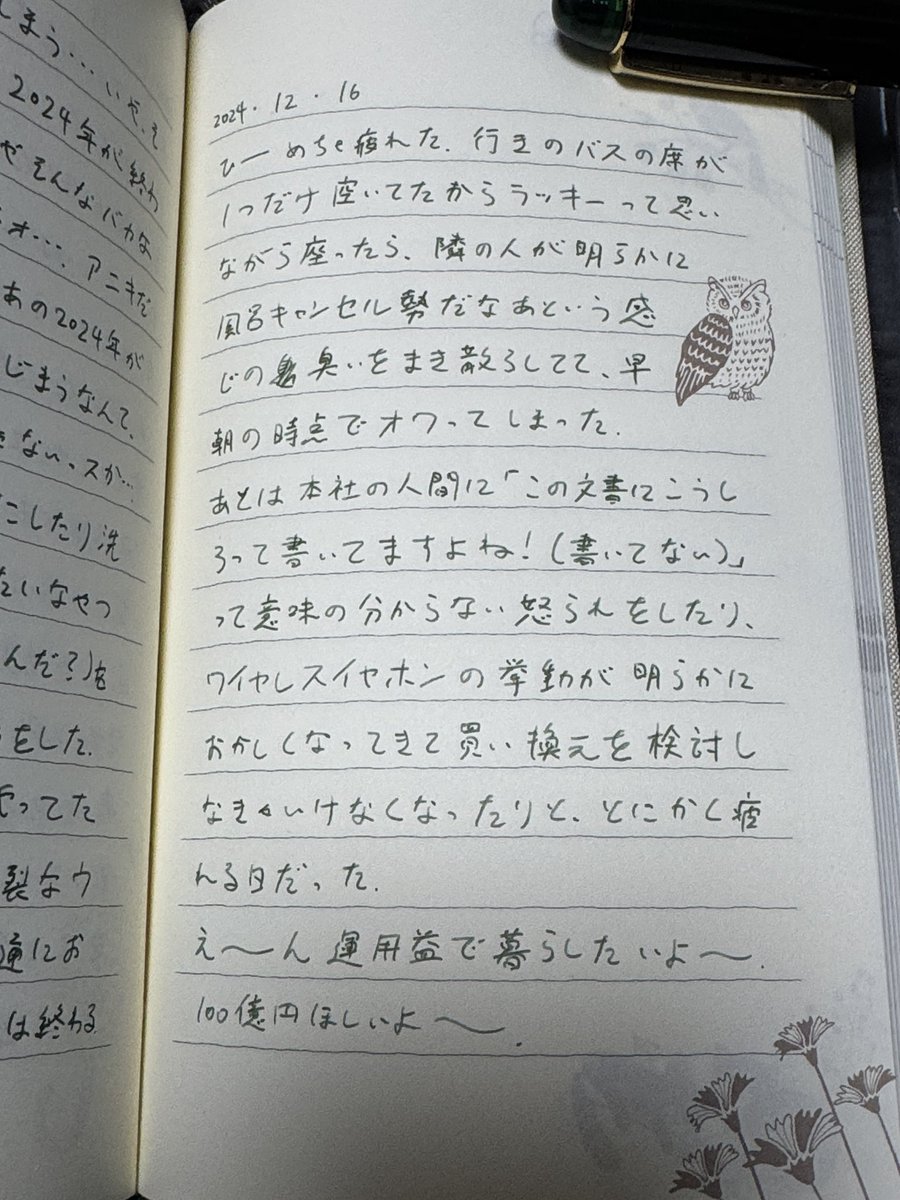 しまう…いや、そ
2024年が終わ
やそんなバカな
オ…、アニキだ
あの2024年が
じまうなんて、
きないっスか…
こしたり洗
たいなやつ
んだ?)を
をした.
やってた
裂なウ
適にお
は終わる
2024.12.16
ひーめちゃ疲れた.行きのバスの席が
1つだけ空いてたからラッキーって思い
ながら座ったら、隣の人が明らかに
風呂キャンセル勢だなあという感
じの臭いをまき散らしてて、早
朝の時点でオワってしまった.
あとは本社の人間に「この文書にこうし
ろって書いてますよね!(書いてない)」
って意味の分からない怒られをしたり、
ワイヤレスイヤホンの挙動が明らかに
おかしくなってきて買い換えを検討し
なきゃいけなくなったりと、とにかく疲
れる日だった.
え〜ん運用益で暮らしたいよ〜.
100億円ほしいよ〜.